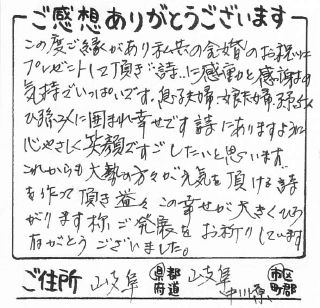 ご感想ありがとうございます
この度ご縁があり私共の金婚のお祝いに
プレゼントして頂き詩に感動と感謝の
気持でいっぱいです。息子夫婦、娘夫婦、孫
ひ孫に囲まれ幸せです 詩にありますように
心やさしく笑顔ですごしたいと思います。
これからも大勢の方々が元気を頂ける詩
を作って頂き益々この幸せが大きくひろ
がります様ご発展をお祈りしています
ありがとうございました。
ご住所 岐阜 都道府県 岐阜 市区町郡